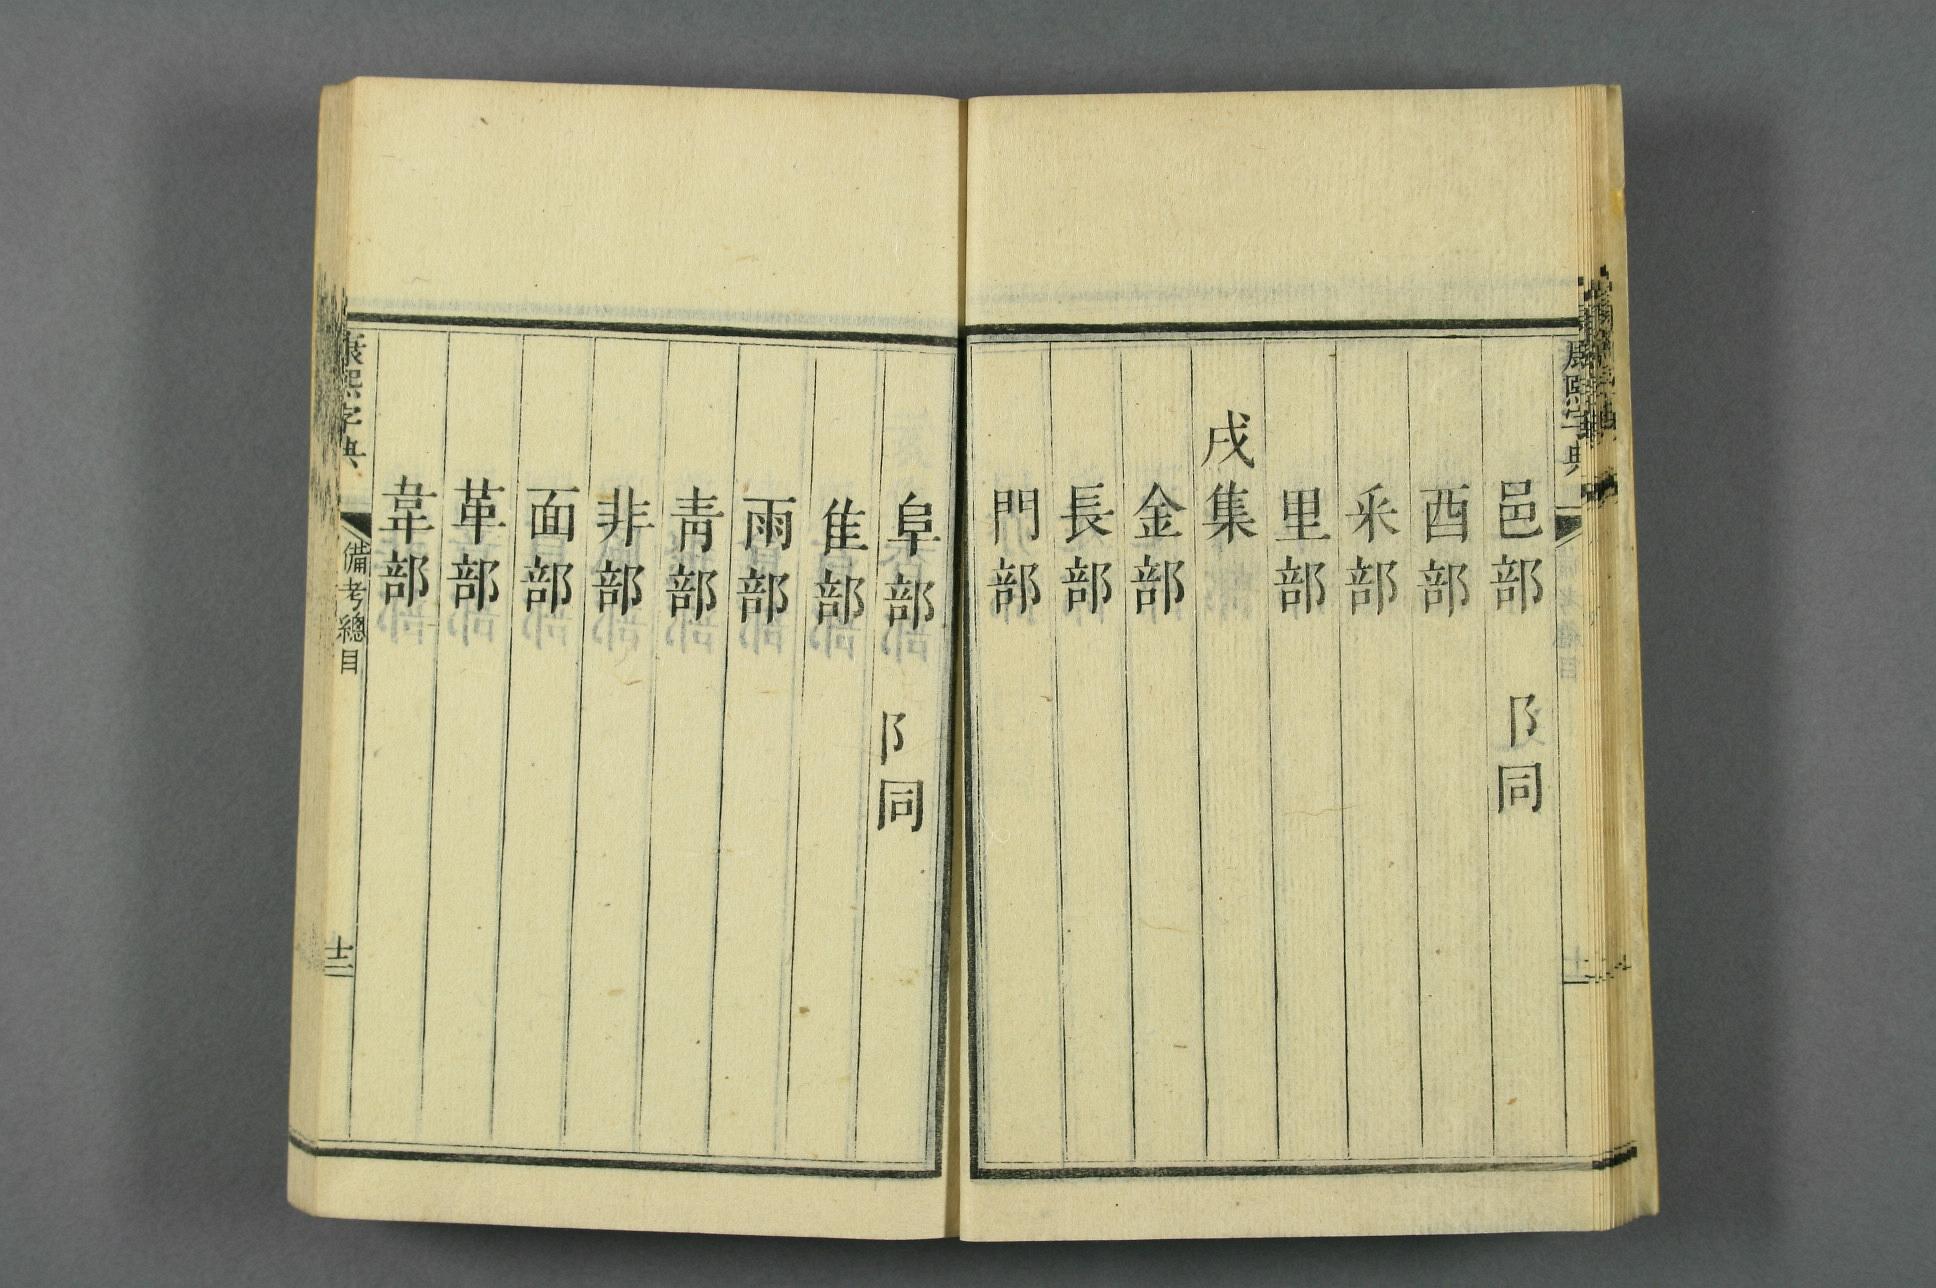 康熙字典
邑部 阝同
酉部
釆部
里部
戌集
金部
長部
門部
阜部 阝同
隹部
雨部
靑部
非部
面部
革部
韋部
康熙字典
備考總目
十二